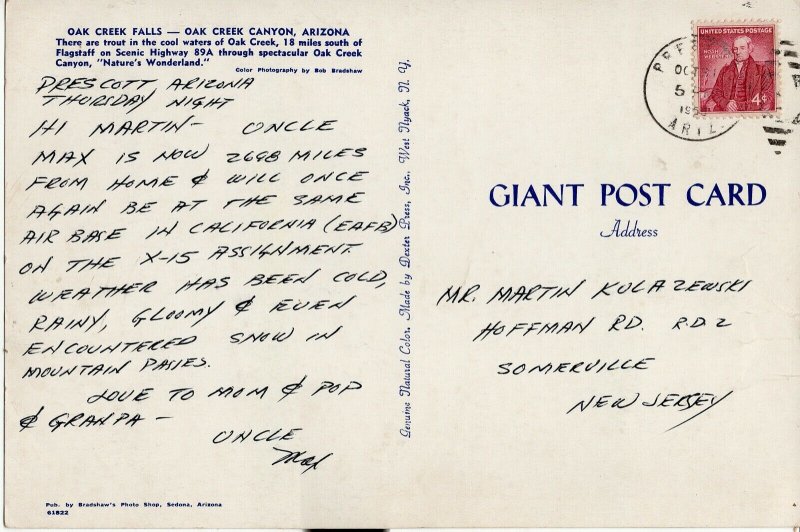 OAK CREEK FALLS — OAK CREEK CANYON, ARIZONA
There are trout in the cool waters of Oak Creek, 18 miles south of
Flagstaff on Scenic Highway 89A through spectacular Oak Creek
Canyon, "Nature's Wonderland."
Color Photography by Bob Bradshaw
PRESCOTT, ARIZONA
THURSDAY NIGHT
HI MARTIN - UNCLE
MAX IS NOW 2698 MILES
FROM HOME & WILL ONCE
AGAIN BE AT THE SAME
AIR BASE IN CALIFORNIA (EAFB)
ON THE X-15 ASSIGNMENT.
WEATHER HAS BEEN COLD,
RAINY, GLOOMY & EVEN
ENCOUNTERED SNOW IN
MOUNTAIN PASSES.
LOVE TO MOM & POP
& GRANPA -
UNCLE
Max
Pub. by Bradshaw's Photo Shop, Sedona, Arizona
61822
Genuine Natural Color. Made by Dexter Press, Inc., West Nyack, N. Y.
UNITED STATES POSTAGE
4¢
OCT
5
ARIZ.
GIANT POST CARD
Address
MR. MARTIN KULAZEWSKI
HOFFMAN RD. R.D. 2
SOMERVILLE
NEW JERSEY